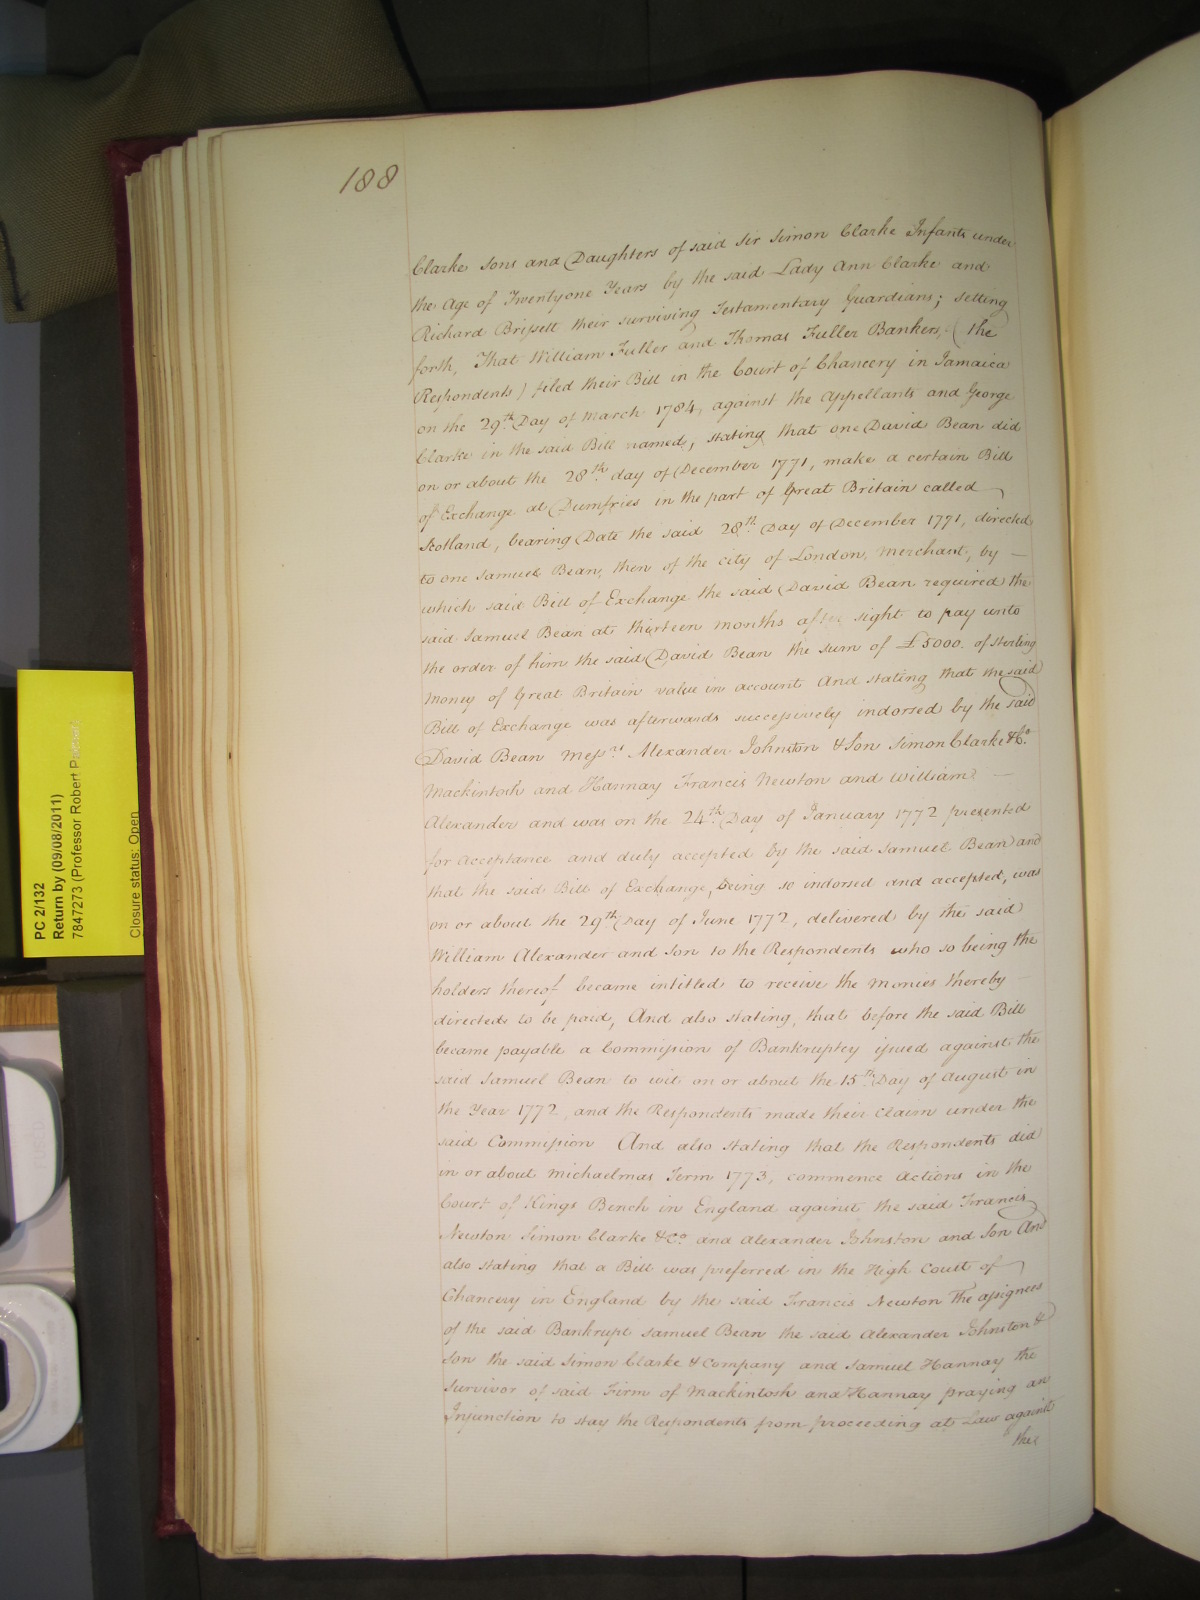 188
Clarke Sons and Daughters of said Sir Simon Clarke Infants under
the Age of Twentyone Years by the said Lady Ann Clarke and
Richard Brissett their surviving Testamentary Guardians; setting
forth, That William Fuller and Thomas Fuller Bankers, (the
Respondents) filed their Bill in the Court of Chancery in Jamaica
on the 29th. Day of March 1784, against the Appellants and George
Clarke in the said Bill named, stating that one David Bean did
on or about the 28th. day of December 1771, make a certain Bill
of Exchange at Dumfries in the part of Great Britain called
Scotland, bearing Date the said 28th. Day of December 1771, directed
to one Samuel Bean, then of the city of London, Merchant, by —
which said Bill of Exchange the said David Bean required the
said Samuel Bean at thirteen months after sight to pay unto
the order of him the said David Bean the sum of £5000. of sterling
Money of Great Britain value in account And stating that the said
Bill of Exchange was afterwards successively indorsed by the said
David Bean Messrs. Alexander Johnston & Son Simon Clarke & Co.
Mackintosh and Hannay Francis Newton and William —
Alexander and was on the 24th. Day of January 1772 presented
for acceptance and duly accepted by the said Samuel Bean and
that the said Bill of Exchange, being so indorsed and accepted, was
on or about the 29th. Day of June 1772, delivered by the said
William Alexander and Son to the Respondents who so being the
holders thereof became intitled to receive the monies thereby
directed to be paid, And also stating, that before the said Bill
became payable a Commission of Bankruptcy issued against the
said Samuel Bean to wit on or about the 15th. Day of August in
the Year 1772, and the Respondents made their Claim under the
said Commission And also stating that the Respondents did
in or about Michaelmas Term 1773, commence Actions in the
Court of Kings Bench in England against the said Francis
Newton Simon Clarke & Co. and Alexander Johnston and Son And
also stating that a Bill was preferred in the High Court of
Chancery in England by the said Francis Newton The assignees
of the said Bankrupt Samuel Bean the said Alexander Johnston &
Son the said Simon Clarke & Company and Samuel Hannay the
Survivor of said Firm of Mackintosh and Hannay praying an
Injunction to stay the Respondents from proceeding at Law against
the
PC 2/132
Return by (09/08/2011)
7847273 (Professor Robert
Closure status: Open